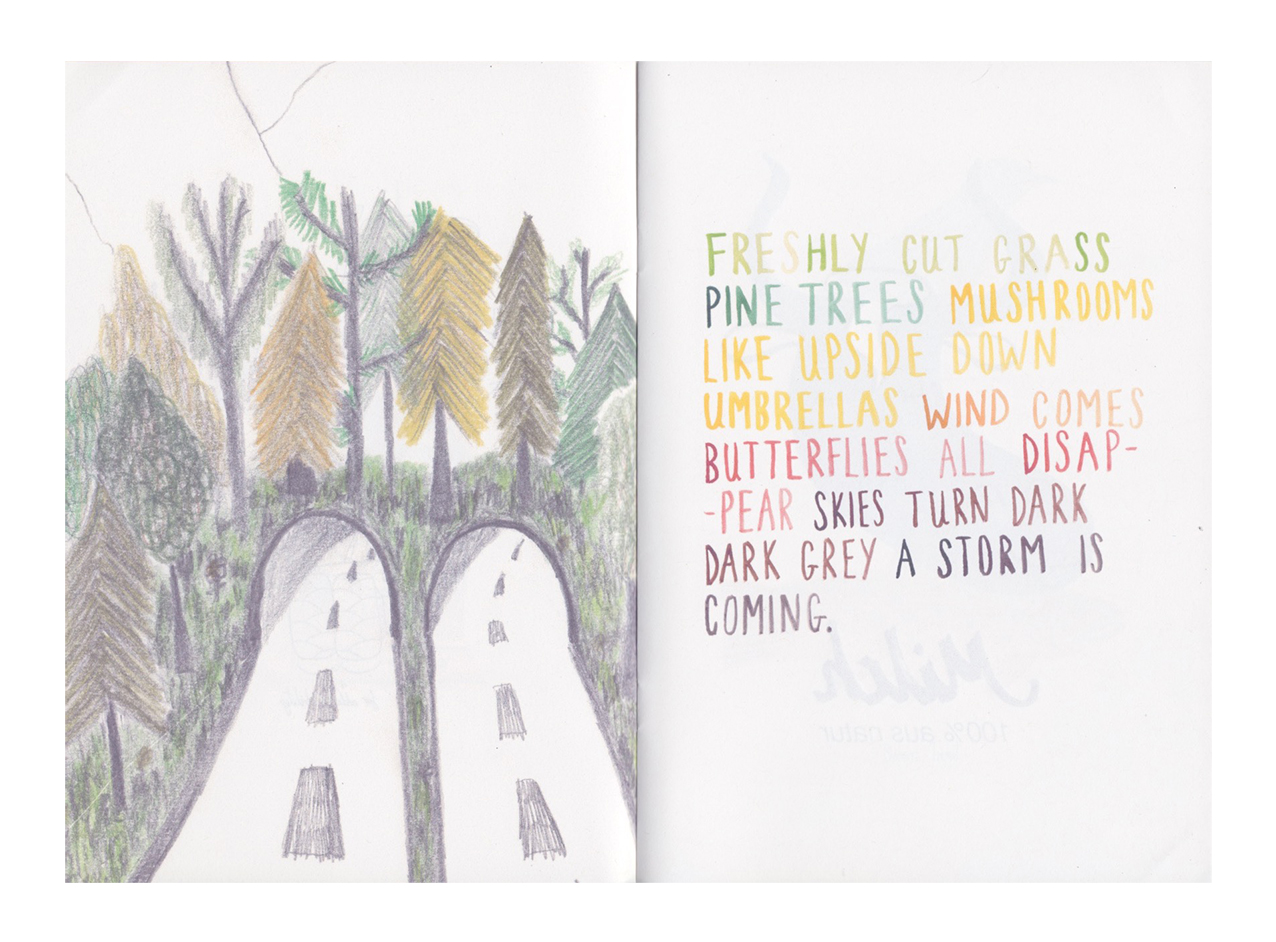 FRESHLY CUT GRASS
PINE TREES MUSHROOMS
LIKE UPSIDE DOWN
UMBRELLAS WIND COMES
BUTTERFLIES ALL DISAP-
-PEAR SKIES TURN DARK
DARK GREY A STORM IS
COMING.
Milch
100% aus catur